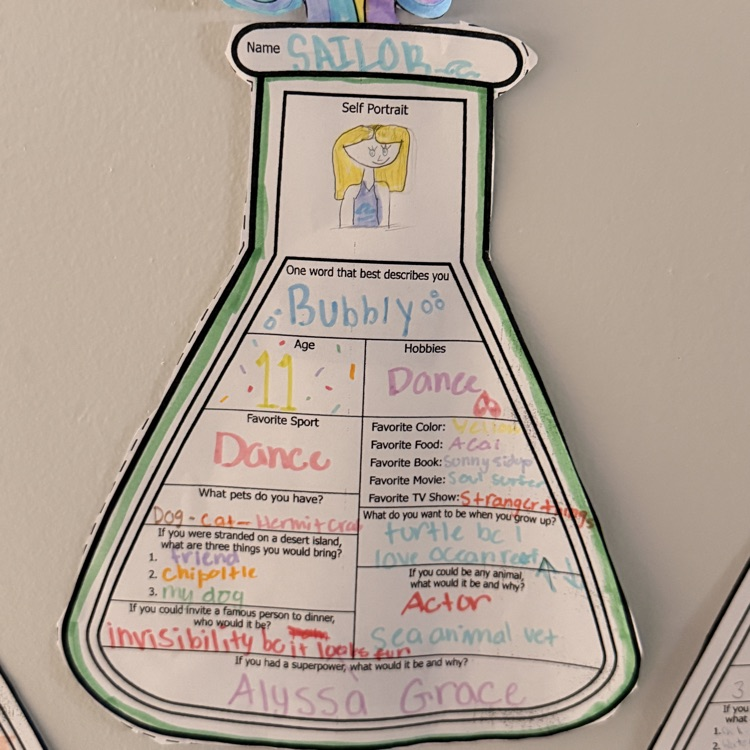 Name SAILOR
Self Portrait
One word that best describes you
Bubbly
Age
11
Hobbies
Dance
Favorite Sport
Dance
Favorite Color: Yellow
Favorite Food: Acai
Favorite Book: Sunny side up
Favorite Movie: Soul surfer
Favorite TV Show: Stranger things
What pets do you have?
Dog - cat - Hermit crab
What do you want to be when you grow up?
turtle bc I
love ocean
If you were stranded on a desert island,
what are three things you would bring?
1. friend
2. chipoltle
3. my dog
If you could be any animal,
what would it be and why?
Actor
Sea animal vet
If you could invite a famous person to dinner,
who would it be?
invisibility bc it looks fun
If you had a superpower, what would it be and why?
Alyssa Grace
3
If you
what
1.
2.